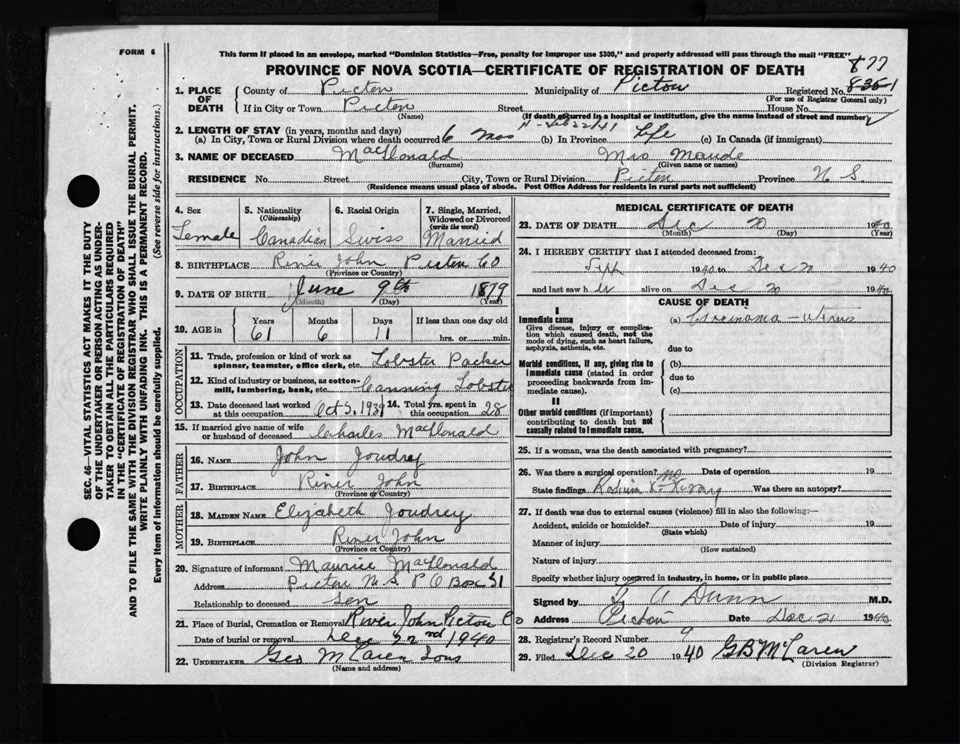 FORM 6
This form if placed in an envelope, marked "Dominion Statistics—Free, penalty for improper use $300," and properly addressed will pass through the mail "FREE"
877
PROVINCE OF NOVA SCOTIA—CERTIFICATE OF REGISTRATION OF DEATH
1. PLACE OF DEATH
County of Pictou Municipality of Pictou Registered No. 8351
(For use of Registrar General only)
If in City or Town Pictou Street House No.
(Name) (If death occurred in a hospital or institution, give the name instead of street and number)
2. LENGTH OF STAY (in years, months and days)
(a) In City, Town or Rural Division where death occurred 6 mos (b) In Province Life (c) In Canada (if immigrant)
3. NAME OF DECEASED MacDonald Mrs Maude
(Surname) (Given name or names)
RESIDENCE No. Street City, Town or Rural Division Pictou Province N. S.
(Residence means usual place of abode. Post Office Address for residents in rural parts not sufficient)
4. Sex Female
5. Nationality (Citizenship) Canadian
6. Racial Origin Swiss
7. Single, Married, Widowed or Divorced (write the word) Married
8. BIRTHPLACE River John Pictou Co
(Province or Country)
9. DATE OF BIRTH June 9th 1879
(Month) (Day) (Year)
10. AGE in Years 61 Months 6 Days 11 If less than one day old hrs. or min.
OCCUPATION
11. Trade, profession or kind of work as spinner, teamster, office clerk, etc. Lobster Packer
12. Kind of industry or business, as cotton-mill, lumbering, bank, etc. Canning Lobster
13. Date deceased last worked at this occupation Oct 5, 1939 14. Total yrs. spent in this occupation 28
15. If married give name of wife or husband of deceased Charles MacDonald
FATHER
16. NAME John Joudrey
17. BIRTHPLACE River John
(Province or Country)
MOTHER
18. MAIDEN NAME Elizabeth Joudrey
19. BIRTHPLACE River John
(Province or Country)
20. Signature of informant Maurice MacDonald
Address Pictou N.S. P O Box 31
Relationship to deceased son
21. Place of Burial, Cremation or Removal River John Pictou Co
Date of burial or removal Dec 22nd 1940
22. UNDERTAKER Geo McLaren Sons
(Name and address)
MEDICAL CERTIFICATE OF DEATH
23. DATE OF DEATH Dec 20 1940
(Month) (Day) (Year)
24. I HEREBY CERTIFY that I attended deceased from:
Sept 1940 to Dec 20 1940
and last saw h er alive on Dec 20 1940
CAUSE OF DEATH
I
Immediate cause
Give disease, injury or complication which caused death, not the mode of dying, such as heart failure, asphyxia, asthenia, etc.
(a) Carcinoma – Uterus
due to
Morbid conditions, if any, giving rise to immediate cause (stated in order proceeding backwards from immediate cause).
(b)
due to
(c)
II
Other morbid conditions (if important) contributing to death but not causally related to immediate cause.
25. If a woman, was the death associated with pregnancy?
26. Was there a surgical operation? no Date of operation 19
State findings Was there an autopsy?
27. If death was due to external causes (violence) fill in also the following:—
Accident, suicide or homicide? Date of injury 19
(State which)
Manner of injury
(How sustained)
Nature of injury
Specify whether injury occurred in industry, in home, or in public place
Signed by A Dunn M.D.
Address Pictou Date Dec 21 1940
28. Registrar's Record Number 9
29. Filed Dec 20 1940 GB McLaren
(Division Registrar)
SEC. 46—VITAL STATISTICS ACT MAKES IT THE DUTY OF THE UNDERTAKER OR PERSON ACTING AS UNDERTAKER TO OBTAIN ALL THE PARTICULARS REQUIRED IN THE "CERTIFICATE OF REGISTRATION OF DEATH" AND TO FILE THE SAME WITH THE DIVISION REGISTRAR WHO SHALL ISSUE THE BURIAL PERMIT.
WRITE PLAINLY WITH UNFADING INK. THIS IS A PERMANENT RECORD.
Every item of information should be carefully supplied. (See reverse side for instructions.)